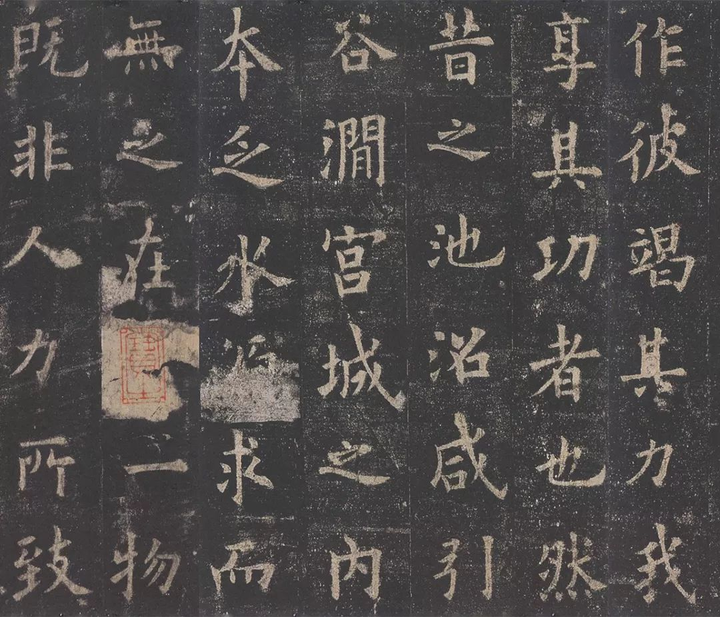 作彼竭其力我
享其功者也然
昔之池沼咸引
谷澗宫城之内
本乏水求而
無之在一物
既非人力所致